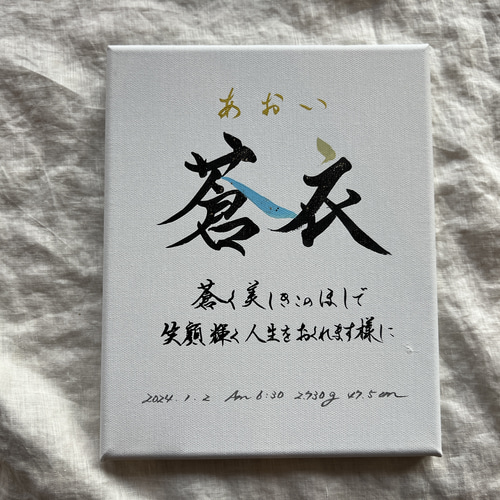 あおい
蒼衣
蒼く美しきこのほしで
笑顔輝く人生をおくれます様に
2024.1.2 Am 6:30 2930g 47.5cm